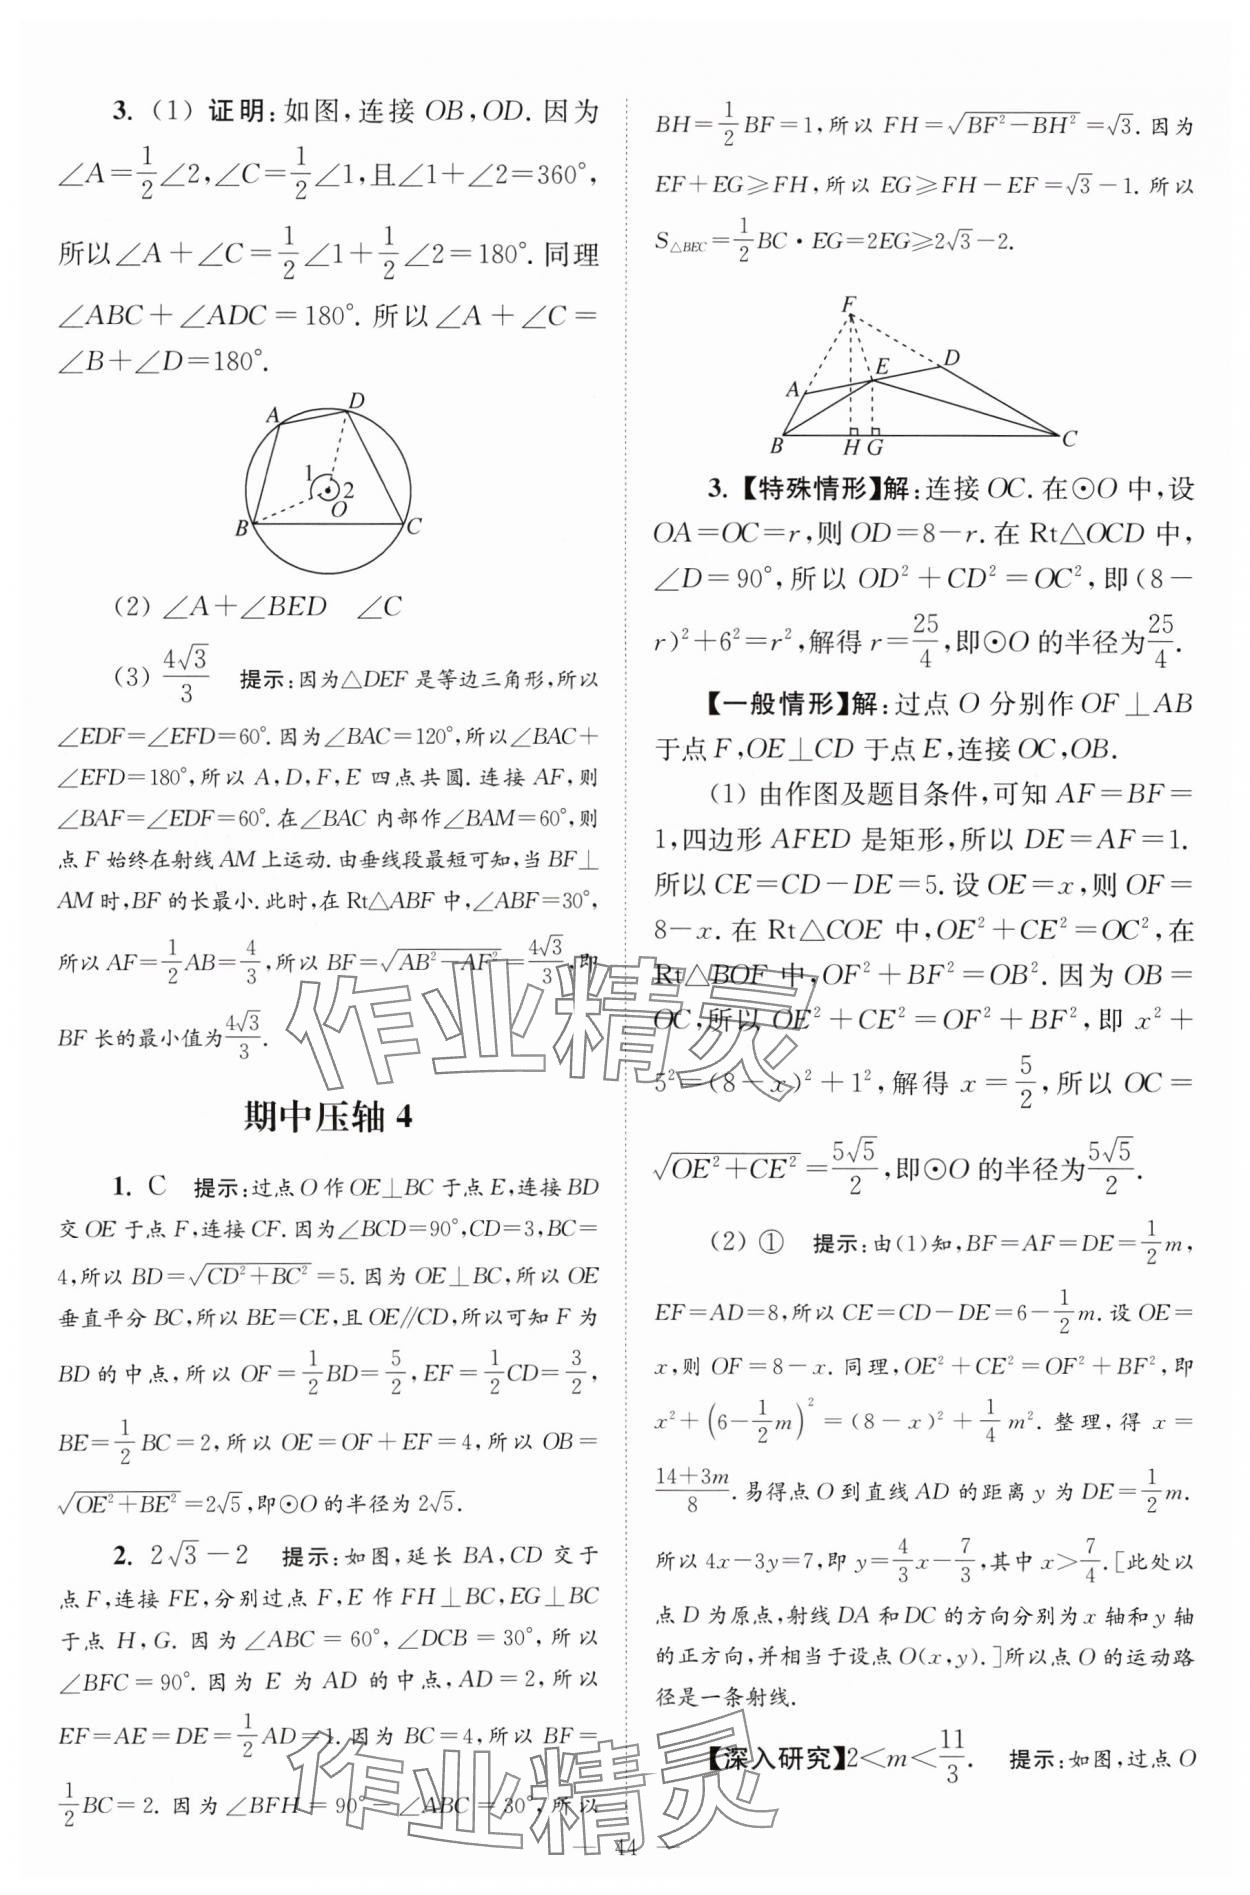 3. (1) 证明:如图,连接 OB,OD. 因为
∠A=1/2∠2,∠C=1/2∠1,且∠1+∠2=360°,
所以∠A+∠C=1/2∠1+1/2∠2=180°. 同理
∠ABC+∠ADC=180°. 所以∠A+∠C=
∠B+∠D=180°.
A
D
1
2
O
B
C
(2) ∠A+∠BED ∠C
(3) 4√3/3 提示:因为△DEF 是等边三角形,所以
∠EDF=∠EFD=60°. 因为∠BAC=120°,所以∠BAC+
∠EFD=180°,所以 A,D,F,E 四点共圆. 连接 AF,则
∠BAF=∠EDF=60°. 在∠BAC 内部作∠BAM=60°,则
点 F 始终在射线 AM 上运动. 由垂线段最短可知,当 BF⊥
AM 时,BF 的长最小. 此时,在 Rt△ABF 中,∠ABF=30°,
所以 AF=1/2AB=4/3,所以 BF=√(AB²-AF²)=4√3/3,即
BF 长的最小值为4√3/3.
期中压轴 4
1. C 提示:过点 O 作 OE⊥BC 于点 E,连接 BD
交 OE 于点 F,连接 CF. 因为∠BCD=90°,CD=3,BC=
4,所以 BD=√(CD²+BC²)=5. 因为 OE⊥BC,所以 OE
垂直平分 BC,所以 BE=CE,且 OE∥CD,所以可知 F 为
BD 的中点,所以 OF=1/2BD=5/2,EF=1/2CD=3/2,
BE=1/2BC=2,所以 OE=OF+EF=4,所以 OB=
√(OE²+BE²)=2√5,即⊙O 的半径为 2√5.
2. 2√3-2 提示:如图,延长 BA,CD 交于
点 F,连接 FE,分别过点 F,E 作 FH⊥BC,EG⊥BC
于点 H,G. 因为∠ABC=60°,∠DCB=30°,所以
∠BFC=90°. 因为 E 为 AD 的中点,AD=2,所以
EF=AE=DE=1/2AD=1. 因为 BC=4,所以 BF=
1/2BC=2. 因为∠BFH=90°-∠ABC=30°,所以
BH=1/2BF=1,所以 FH=√(BF²-BH²)=√3. 因为
EF+EG≥FH,所以 EG≥FH-EF=√3-1. 所以
S△BEC=1/2BC·EG=2EG≥2√3-2.
F
A
E
D
B
H
G
C
3.【特殊情形】解:连接 OC. 在⊙O 中,设
OA=OC=r,则 OD=8-r. 在 Rt△OCD 中,
∠D=90°,所以 OD²+CD²=OC²,即(8-
r)²+6²=r²,解得 r=25/4,即⊙O 的半径为25/4.
【一般情形】解:过点 O 分别作 OF⊥AB
于点 F,OE⊥CD 于点 E,连接 OC,OB.
(1) 由作图及题目条件,可知 AF=BF=
1,四边形 AFED 是矩形,所以 DE=AF=1.
所以 CE=CD-DE=5. 设 OE=x,则 OF=
8-x. 在 Rt△COE 中,OE²+CE²=OC²,在
Rt△BOF 中,OF²+BF²=OB². 因为 OB=
OC,所以 OE²+CE²=OF²+BF²,即 x²+
5²=(8-x)²+1²,解得 x=5/2,所以 OC=
√(OE²+CE²)=5√5/2,即⊙O 的半径为5√5/2.
(2) ① 提示:由(1)知,BF=AF=DE=1/2m,
EF=AD=8,所以 CE=CD-DE=6-1/2m. 设 OE=
x,则 OF=8-x. 同理,OE²+CE²=OF²+BF²,即
x²+(6-1/2m)²=(8-x)²+1/4m². 整理,得 x=
14+3m/8. 易得点 O 到直线 AD 的距离 y 为 DE=1/2m.
所以 4x-3y=7,即 y=4/3x-7/3,其中 x>7/4.[此处以
点 D 为原点,射线 DA 和 DC 的方向分别为 x 轴和 y 轴
的正方向,并相当于设点 O(x,y).]所以点 O 的运动路
径是一条射线.
【深入研究】2<m<11/3. 提示:如图,过点 O
— 44 —
作业精灵
作业精灵